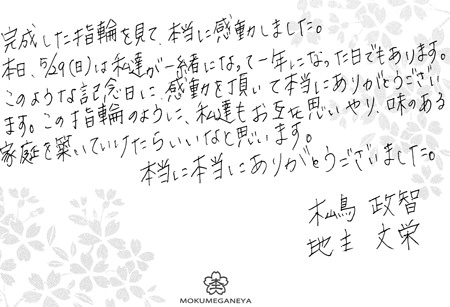 完成した指輪を見て、本当に感動しました。
本日、5/29(日)は私達が一緒になって一年になった日でもあります。
このような記念日に、感動を頂いて本当にありがとうござい
ます。この指輪のように、私達もお互を思いやり、味のある
家庭を築いていけたらいいなと思います。
本当に本当にありがとうございました。
政智
地主 文栄
MOKUMEGANEYA